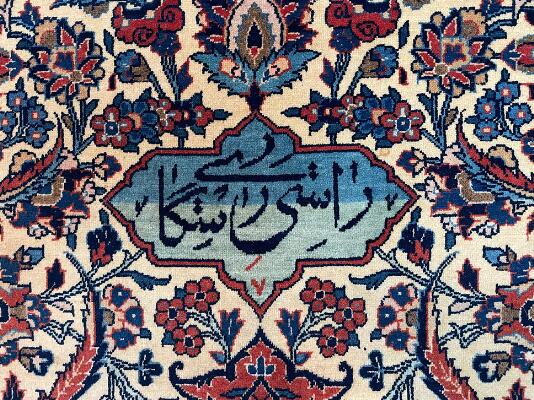 راستی رستگاری